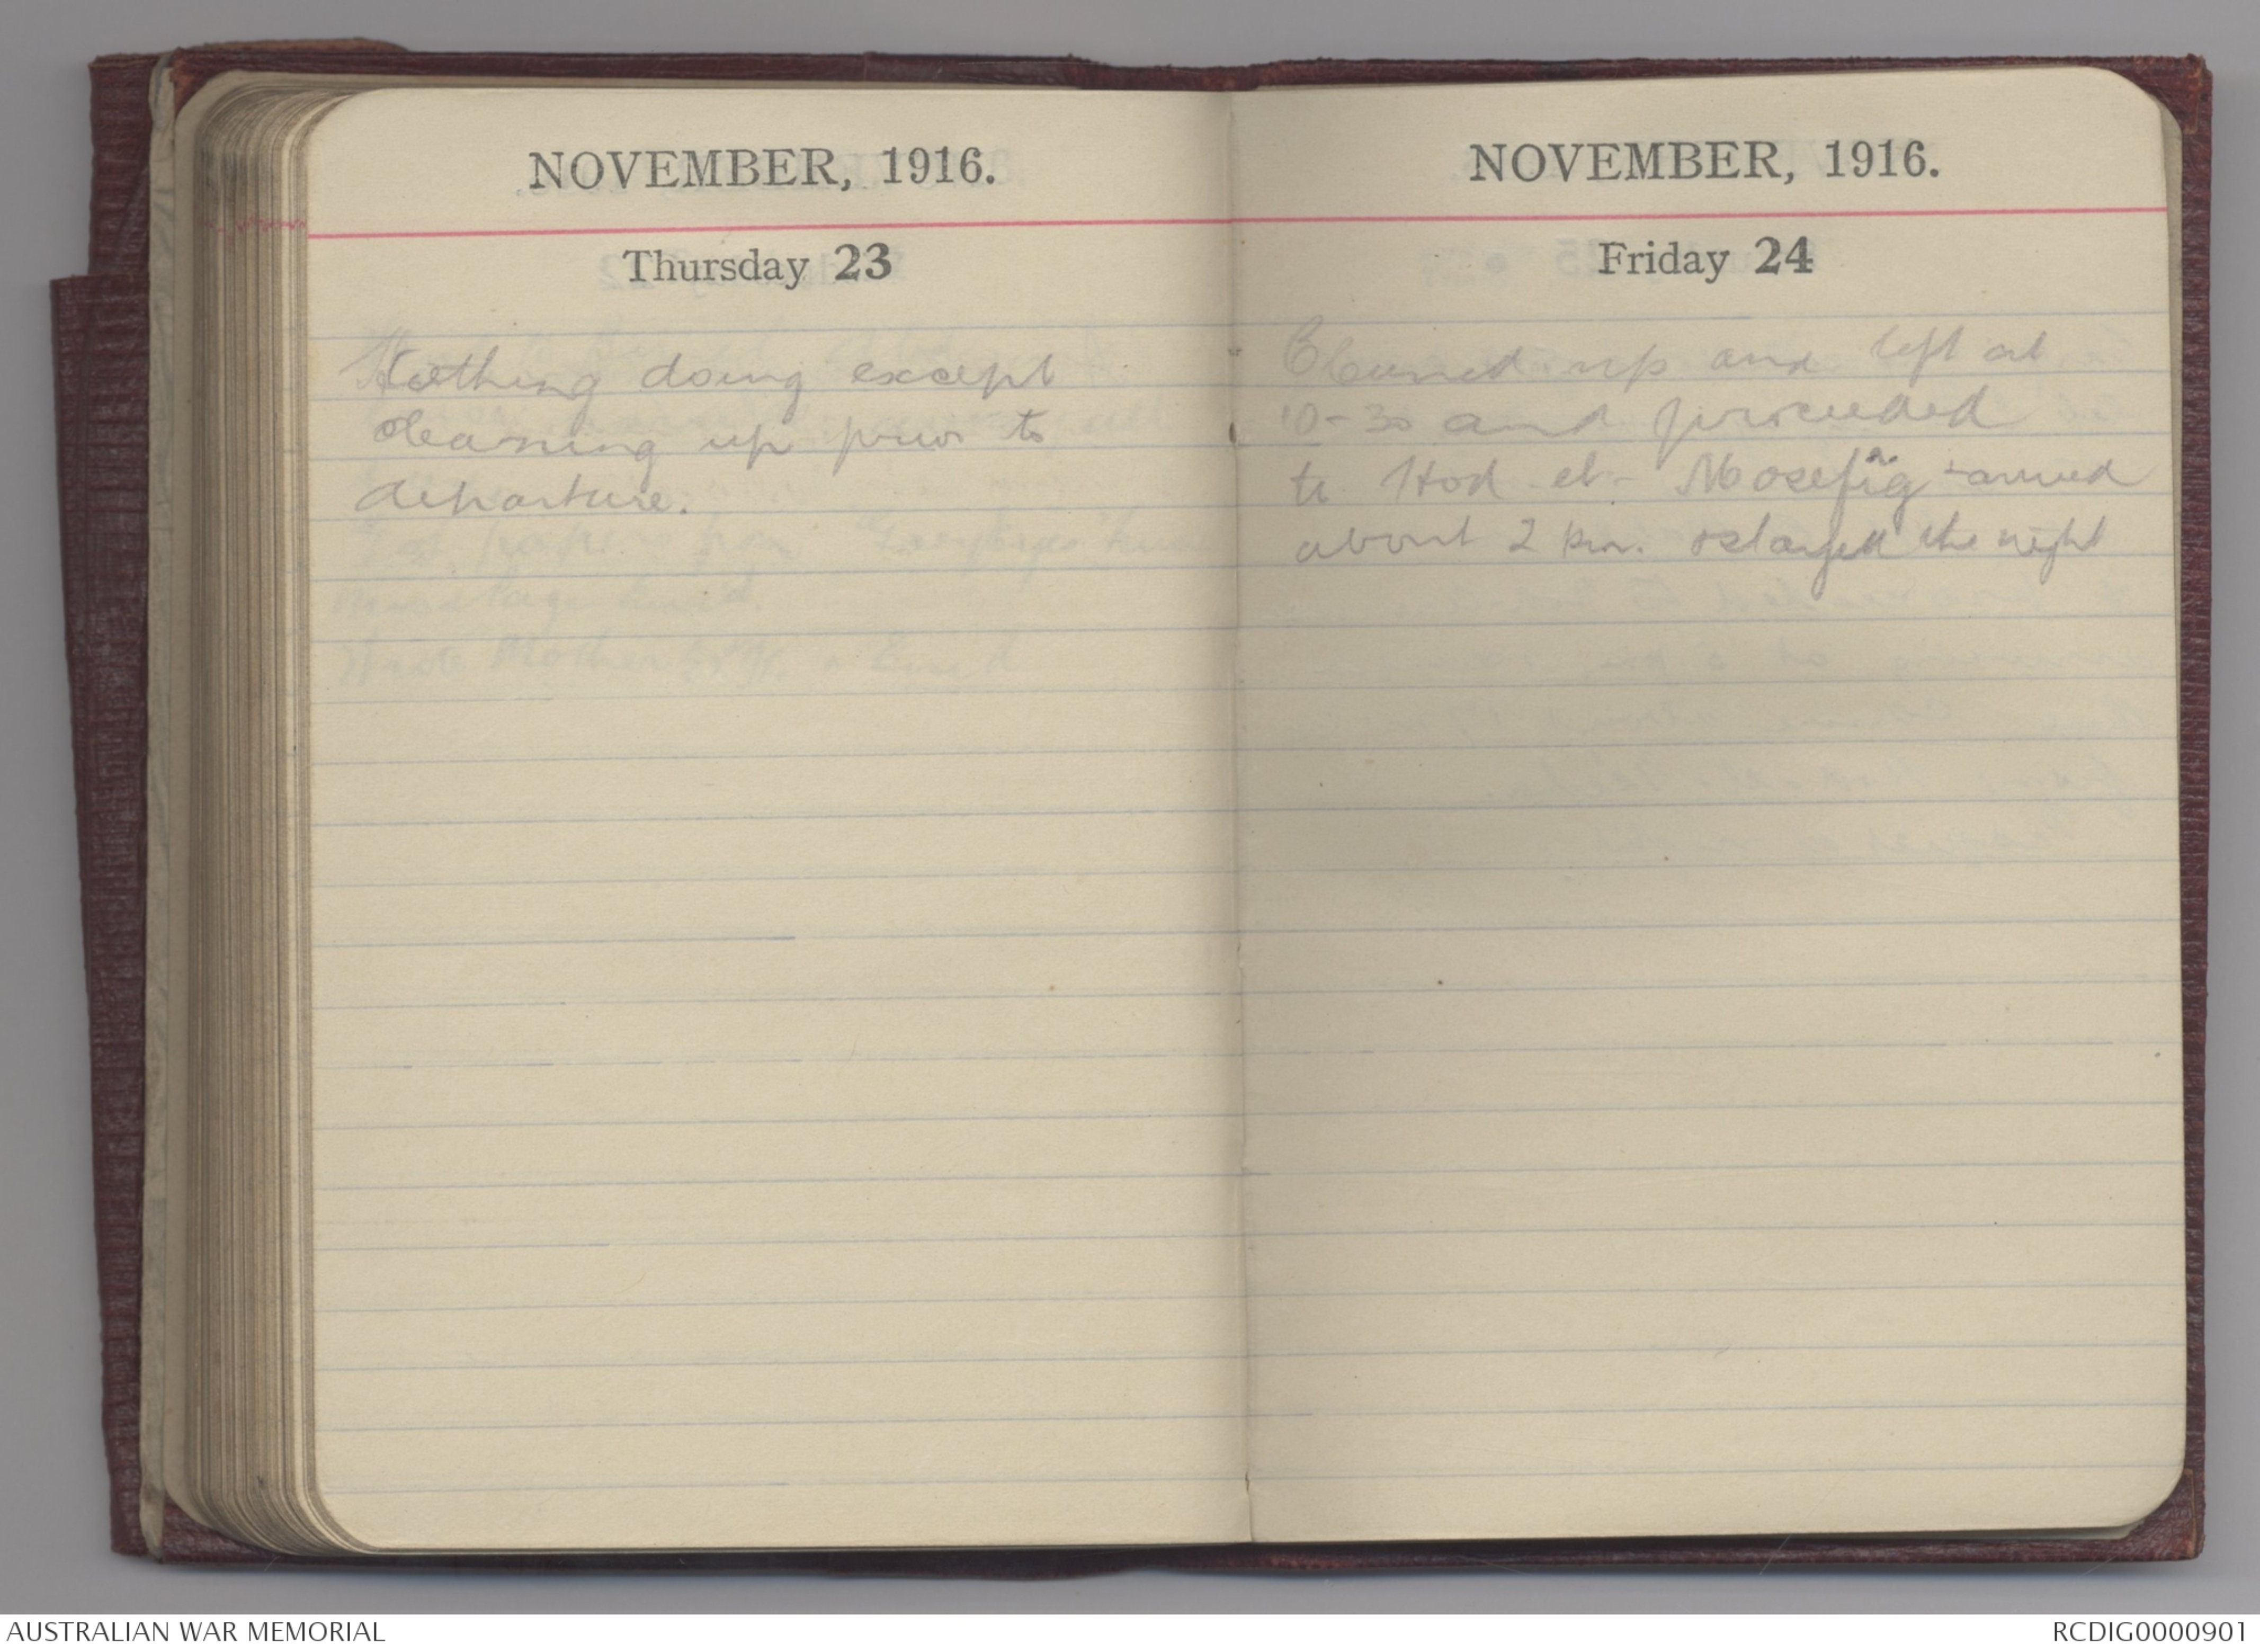 NOVEMBER, 1916.
Thursday 23
Nothing doing except
cleaning up prior to
departure.
NOVEMBER, 1916.
Friday 24
Cleaned up and left at
10-30 and proceeded
to Hod-el-Mosefig + arrived
about 2 pm. + stayed the night
AUSTRALIAN WAR MEMORIAL
RCDIG0000901